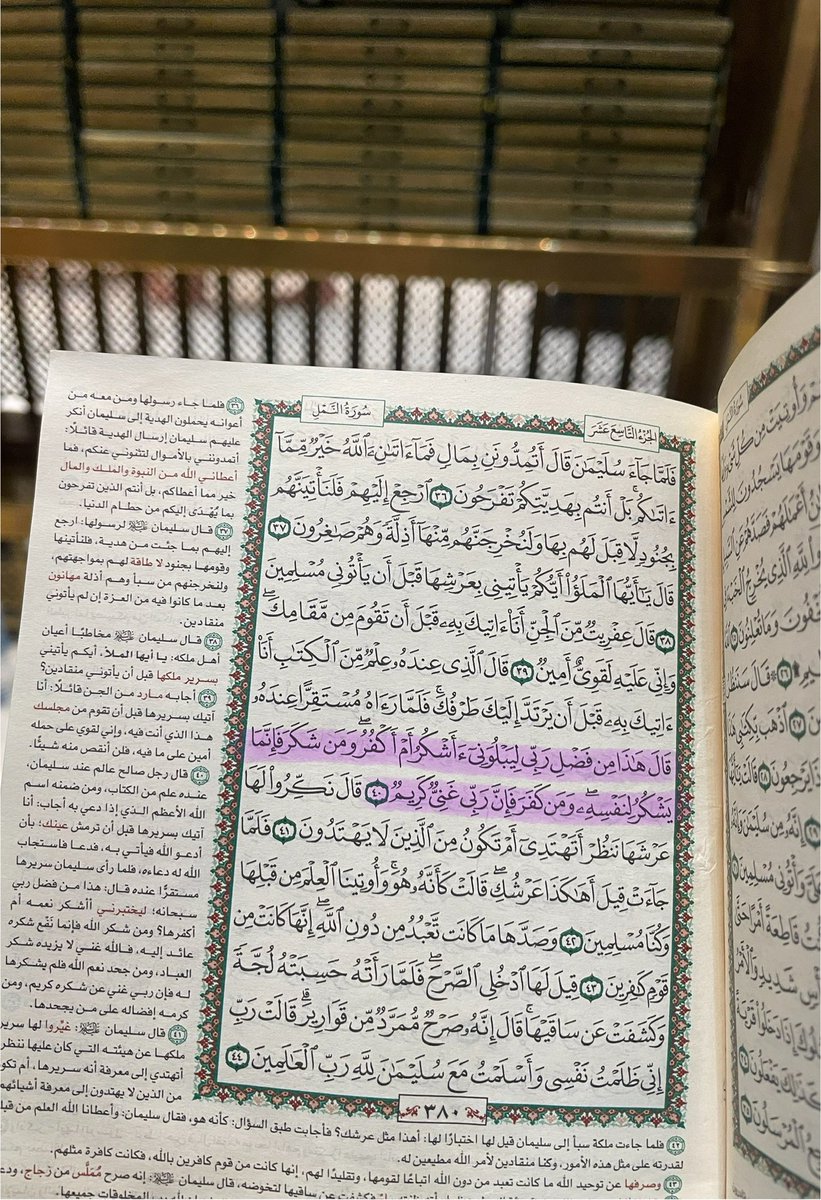 سُورَةُ النَّمْلِ
الجُزْءُ التَّاسِعَ عَشَرَ
فَلَمَّا جَآءَ سُلَيْمَٰنَ قَالَ أَتُمِدُّونَنِ بِمَالٍ فَمَآ ءَاتَىٰنِۦَ ٱللَّهُ خَيْرٌ مِّمَّآ
ءَاتَىٰكُم بَلْ أَنتُم بِهَدِيَّتِكُمْ تَفْرَحُونَ ٣٦ ٱرْجِعْ إِلَيْهِمْ فَلَنَأْتِيَنَّهُم
بِجُنُودٍ لَّا قِبَلَ لَهُم بِهَا وَلَنُخْرِجَنَّهُم مِّنْهَآ أَذِلَّةً وَهُمْ صَٰغِرُونَ ٣٧
قَالَ يَٰٓأَيُّهَا ٱلْمَلَؤُا۟ أَيُّكُمْ يَأْتِينِى بِعَرْشِهَا قَبْلَ أَن يَأْتُونِى مُسْلِمِينَ
٣٨ قَالَ عِفْرِيتٌ مِّنَ ٱلْجِنِّ أَنَا۠ ءَاتِيكَ بِهِۦ قَبْلَ أَن تَقُومَ مِن مَّقَامِكَ ۖ
وَإِنِّى عَلَيْهِ لَقَوِىٌّ أَمِينٌ ٣٩ قَالَ ٱلَّذِى عِندَهُۥ عِلْمٌ مِّنَ ٱلْكِتَٰبِ أَنَا۠
ءَاتِيكَ بِهِۦ قَبْلَ أَن يَرْتَدَّ إِلَيْكَ طَرْفُكَ ۚ فَلَمَّا رَءَاهُ مُسْتَقِرًّا عِندَهُۥ
قَالَ هَٰذَا مِن فَضْلِ رَبِّى لِيَبْلُوَنِىٓ ءَأَشْكُرُ أَمْ أَكْفُرُ ۖ وَمَن شَكَرَ فَإِنَّمَا
يَشْكُرُ لِنَفْسِهِۦ ۖ وَمَن كَفَرَ فَإِنَّ رَبِّى غَنِىٌّ كَرِيمٌ ٤٠ قَالَ نَكِّرُوا۟ لَهَا
عَرْشَهَا نَنظُرْ أَتَهْتَدِىٓ أَمْ تَكُونُ مِنَ ٱلَّذِينَ لَا يَهْتَدُونَ ٤١ فَلَمَّا
جَآءَتْ قِيلَ أَهَٰكَذَا عَرْشُكِ ۖ قَالَتْ كَأَنَّهُۥ هُوَ ۚ وَأُوتِينَا ٱلْعِلْمَ مِن قَبْلِهَا
وَكُنَّا مُسْلِمِينَ ٤٢ وَصَدَّهَا مَا كَانَت تَّعْبُدُ مِن دُونِ ٱللَّهِ ۖ إِنَّهَا كَانَتْ مِن
قَوْمٍ كَٰفِرِينَ ٤٣ قِيلَ لَهَا ٱدْخُلِى ٱلصَّرْحَ ۖ فَلَمَّا رَأَتْهُ حَسِبَتْهُ لُجَّةً
وَكَشَفَتْ عَن سَاقَيْهَا ۚ قَالَ إِنَّهُۥ صَرْحٌ مُّمَرَّدٌ مِّن قَوَارِيرَ ۗ قَالَتْ رَبِّ
إِنِّى ظَلَمْتُ نَفْسِى وَأَسْلَمْتُ مَعَ سُلَيْمَٰنَ لِلَّهِ رَبِّ ٱلْعَٰلَمِينَ ٤٤
٣٨٠
٣٦ فلما جاء رسولها ومن معه من
أعوانه يحملون الهدية إلى سليمان أنكر
عليهم سليمان إرسال الهدية قائلًا:
أتمدونني بالأموال لتثنوني عنكم، فما
أعطاني الله من النبوة والملك والمال
خير مما أعطاكم، بل أنتم الذين تفرحون
بما يُهْدَى إليكم من حطام الدنيا.
٣٧ قال سليمان ﷺ لرسولها: ارجع
إليهم بما جئت من هدية، فلنأتينها
وقومها بجنود لا طاقة لهم بمواجهتهم،
ولنخرجنهم من سبأ وهم أذلة مهانون
بعدما كانوا فيه من العزة إن لم يأتوني
منقادين.
٣٨ قال سليمان ﷺ مخاطبًا أعيان
أهل ملكه: يا أيها الملأ، أيكم يأتيني
بسرير ملكها قبل أن يأتوني منقادين؟
٣٩ أجابه مارد من الجن قائلًا: أنا
آتيك بسريرها قبل أن تقوم من مجلسك
هذا الذي أنت فيه، وإني لقوي على حمله
أمين على ما فيه، فلن أنقص منه شيئًا.
٤٠ قال رجل صالح عالم عند سليمان،
عنده علم من الكتاب، ومن ضمنه اسم
الله الأعظم الذي إذا دعي به أجاب: أنا
آتيك بسريرها قبل أن ترمش عينك؛ بأن
أدعو الله فيأتي به، فدعا فاستجاب
الله له دعاءه، فلما رأى سليمان سريرها
مستقرًّا عنده قال: هذا من فضل ربي
سبحانه؛ ليختبرني أأشكر نعمه أم
أكفرها؟ ومن شكر الله فإنما نَفْع شكره
عائد إليه، فالله غني لا يزيده شكر
العباد، ومن جحد نعم الله فلم يشكرها
له فإن ربي غني عن شكره كريم، ومن
كرمه إفضاله على من يجحدها.
٤١ قال سليمان ﷺ: غيِّروا لها سرير
ملكها عن هيئته التي كان عليها ننظر
أتهتدي إلى معرفة أنه سريرها، أم تكون
من الذين لا يهتدون إلى معرفة أشيائهم
٤٢ فلما جاءت ملكة سبأ إلى سليمان قيل لها اختبارًا لها: أهذا مثل عرشك؟ فأجابت طبق السؤال: كأنه هو، فقال سليمان: وأعطانا الله العلم من
لقدرته على مثل هذه الأمور، وكنا منقادين لأمر الله مطيعين له.
٤٣ وصرفها عن توحيد الله ما كانت تعبد من دون الله اتباعًا لقومها، وتقليدًا لهم، إنها كانت من قوم كافرين بالله، فكانت كافرة مثلهم.